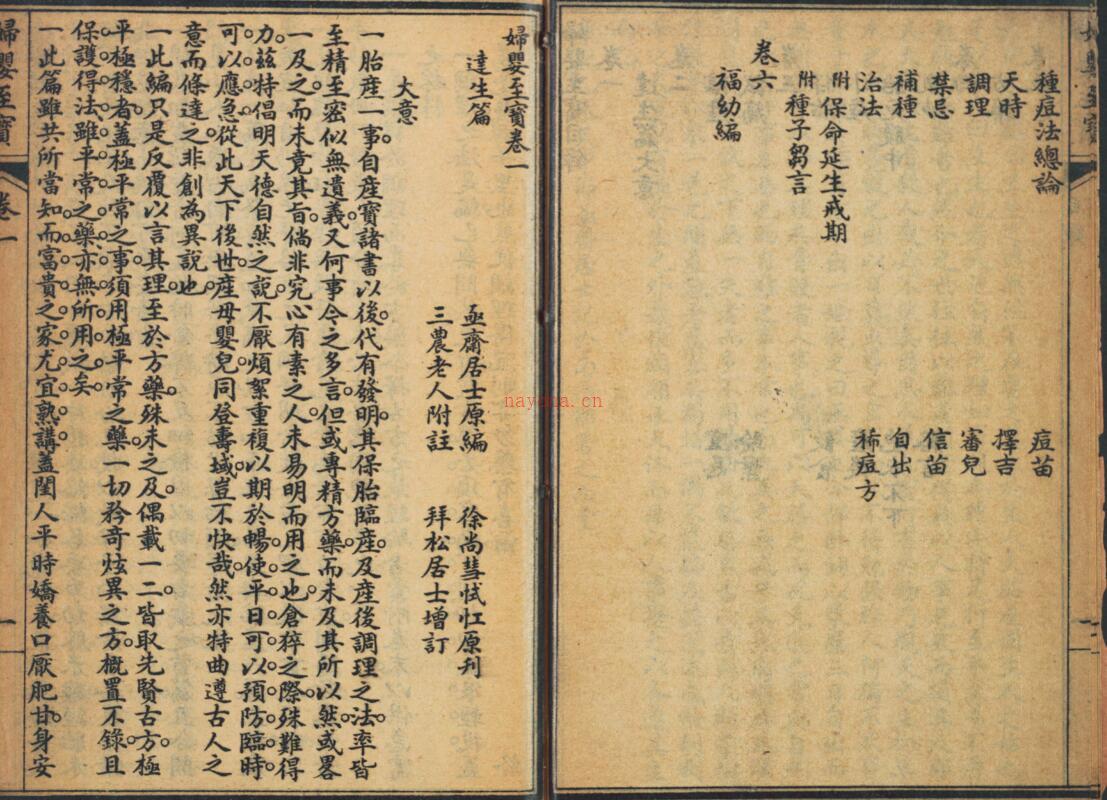 種痘法總論
痘苗
天時
擇吉
調理
審兒
禁忌
信苗
補種
自出
治法
稀痘方
附保命延生戒期
附種子芻言
卷六
福幼編
婦嬰至寶卷一
達生篇
亟齋居士原編
徐尚彗
原刋
三農老人附註
拜松居士增訂
大意
一胎產一事。自產寶諸書以後。代有發明。其保胎臨產。及產後調理之法。率皆
至精至密。似無遺義。又何事今之多言。但或專精方藥。而未及其所以然。或畧
一及之。而未竟其旨。倘非究心有素之人。未易明而用之也。倉猝之際。殊難得
力。茲特倡明天德自然之說。不厭煩絮重複。以期於暢。使平日可以預防。臨時
可以應急。從此天下後世。產母嬰兒。同登壽域。豈不快哉。然亦特曲遵古人之
意而條達之。非創為異說也。
一此編只是反覆以言其理。至於方藥。殊未之及。偶載一二。皆取先賢古方。極
平極穩者。蓋極平常之事。須用極平常之藥。一切矜奇炫異之方。概置不錄。且
保護得法。雖平常之藥。亦無所用之矣。
一此篇雖共所當知。而富貴之家。尤宜熟講。蓋閨人平時嬌養。口厭肥甘。身安
婦嬰至寶
卷一
一
nayona.cn